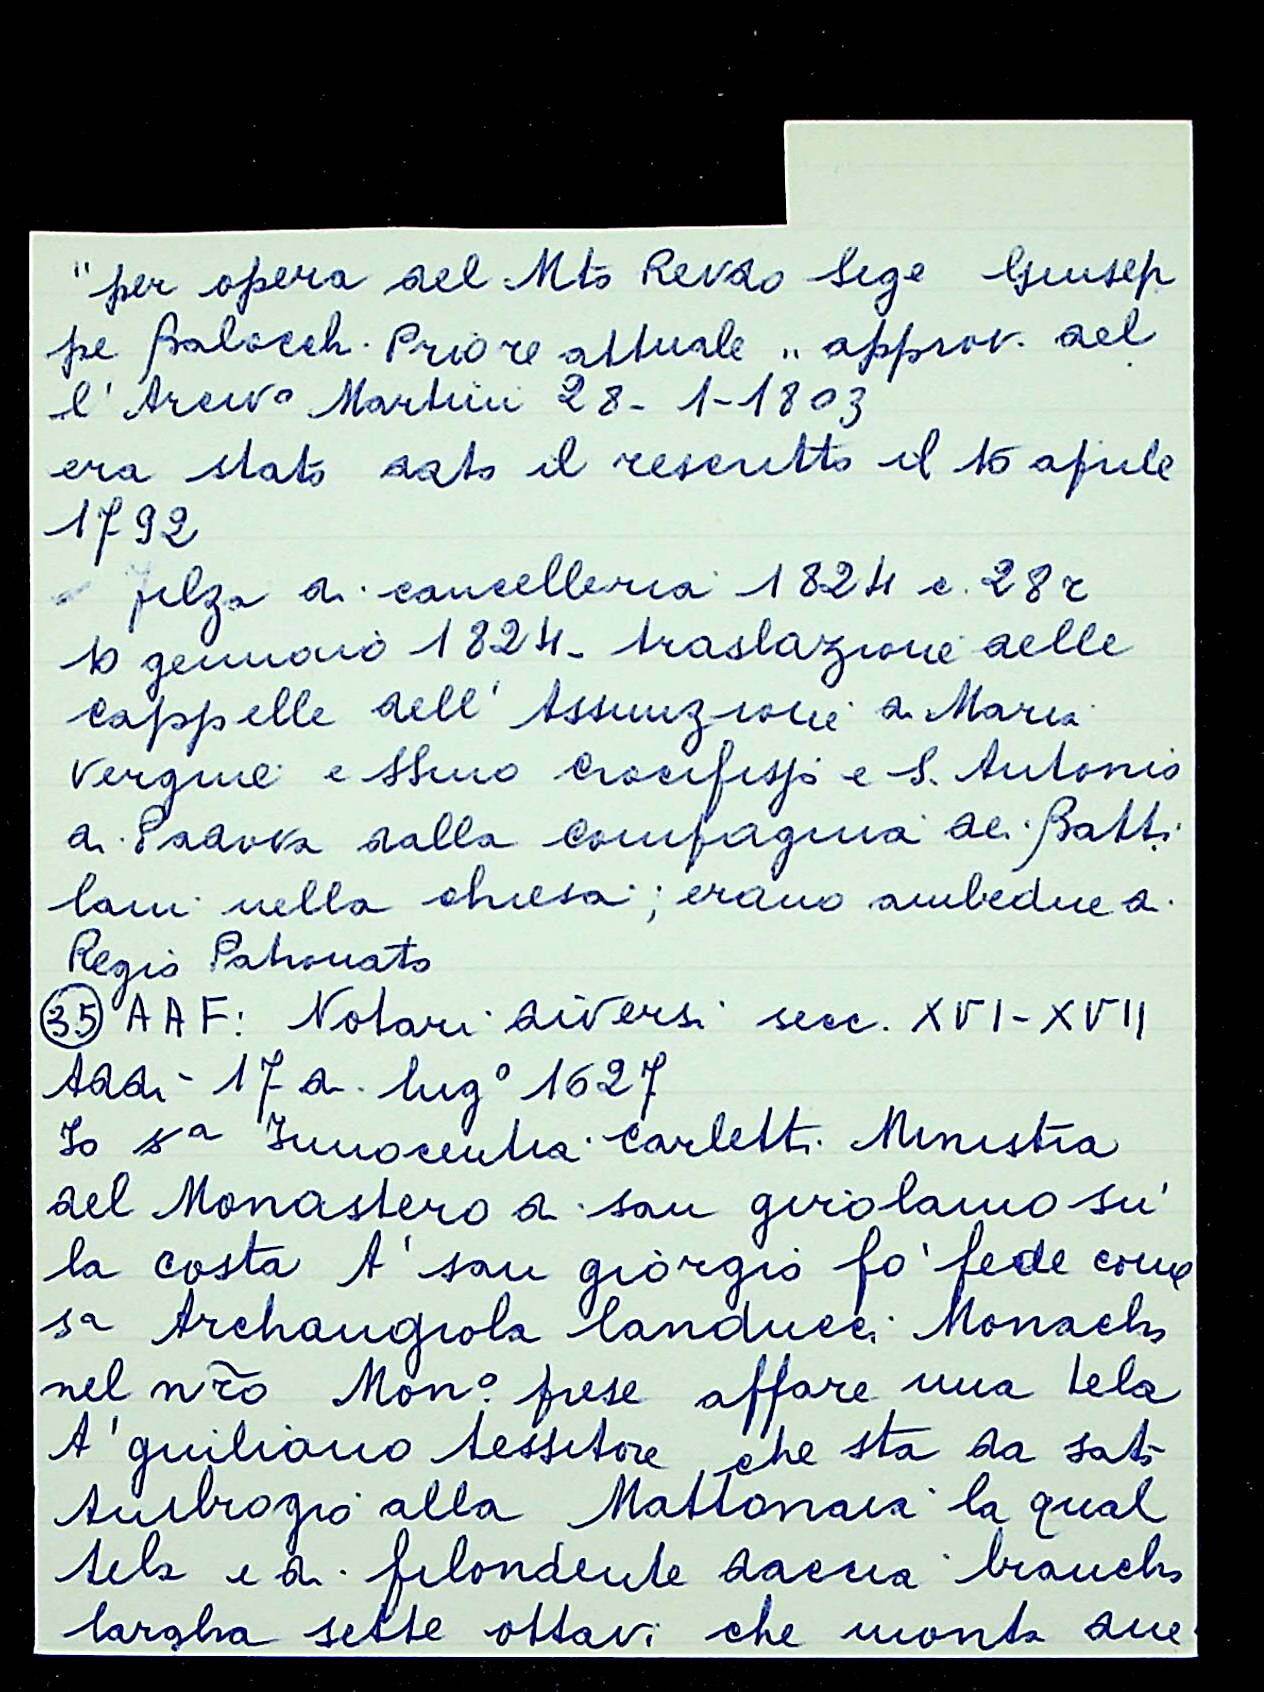 "per opera del Mto Revdo Sige Giusep
pe Balocch. Priore attuale " approv. del
l'Arcivo Martini 28-1-1803
era stato dato il rescritto il 10 aprile
1792
Filza di cancelleria 1824 c. 28r
10 gennaio 1824 - traslazione delle
cappelle dell'Assunzione di Maria
Vergine e SSmo Crocifisso e S. Antonio
di Padova dalla compagnia dei Batti
lani nella chiesa; erano ambedue di
Regio Patronato
35 AAF: Notari diversi secc. XVI-XVII
Addi - 17 di lugo 1627
Io sa Innocentia Carletti Ministra
del Monastero di san girolamo su'
la costa A' san giorgio fo' fede come
sa Archangiola landucci Monacha
nel nr̃o Mono. prese affare una tela
A' guiliano tessitore che sta da sato
Ambrogio alla Mattonaia la qual
tela e di filondente daccia biancha
largha sette ottavi che monta due